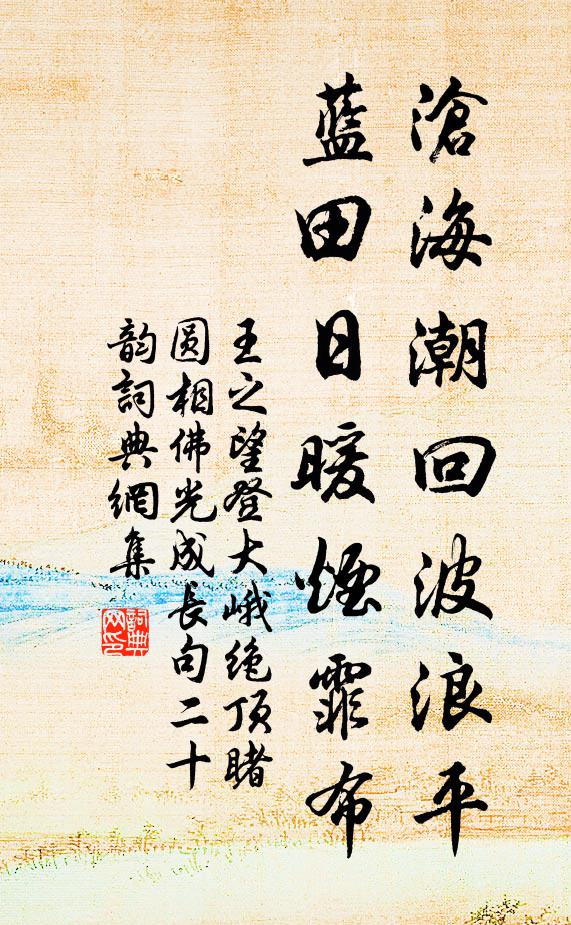 滄海潮回波浪平
藍田日暖煙霏布
王之望登大峨绝頂睹
圓相佛光成長句二十
韵詞典網集
詞典
网印